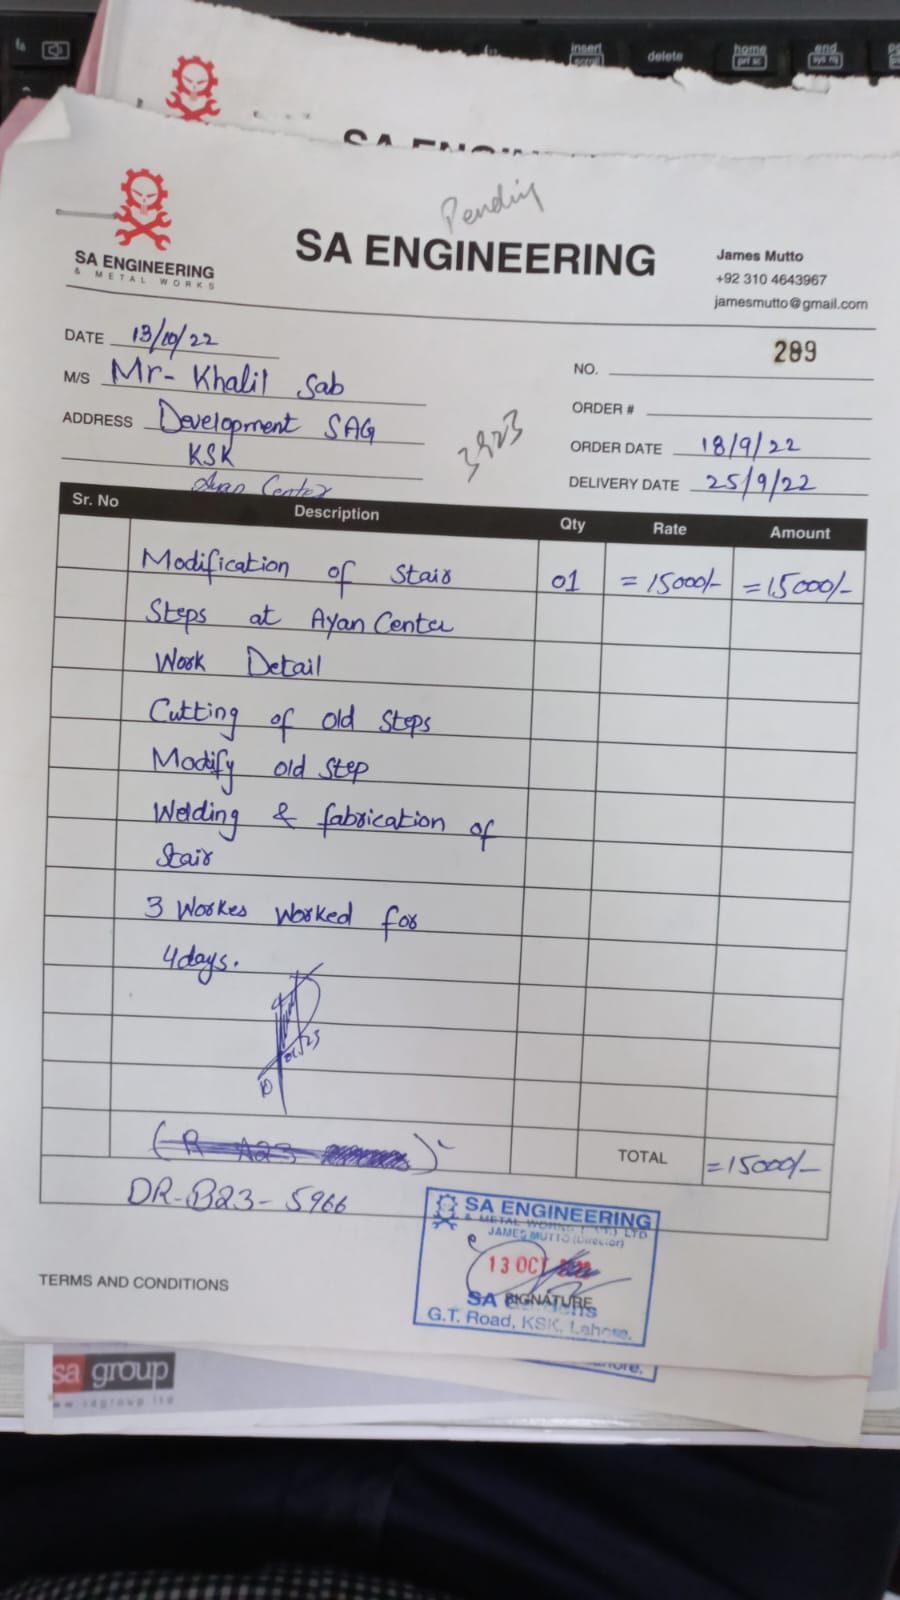 insert
delete
home
prt sc
end
SA ENGINEERING
& METAL WORKS
Pending
SA ENGINEERING
James Mutto
+92 310 4643967
jamesmutto@gmail.com
DATE 13/10/22
NO. 289
M/S Mr- Khalil Sab
ORDER #
ADDRESS Development SAG
3923
ORDER DATE 18/9/22
KSK
DELIVERY DATE 25/9/22
Ayan Center
Sr. No Description Qty Rate Amount
Modification of Stair 01 =15000/- =15000/-
Steps at Ayan Center
Work Detail
Cutting of old Steps
Modify old Step
Welding & fabrication of
Stair
3 Workes Worked for
4days.
TOTAL =15000/-
DR-B23-5966
SA ENGINEERING
& METAL WORKS LTD
JAMES MUTTO (Director)
13 OCT
SIGNATURE
SA
G.T. Road, KSK, Lahore.
TERMS AND CONDITIONS
sa group